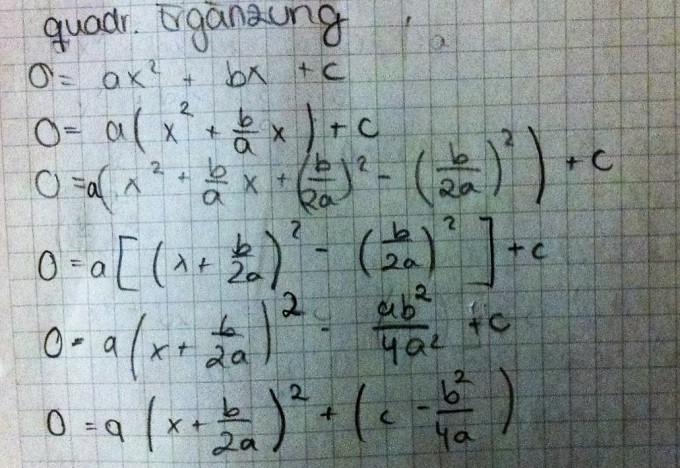 quadr. Ergänzung
0 = ax² + bx + c
0 = a( x² + b/a x ) + c
0 = a( x² + b/a x + (b/2a)² - (b/2a)² ) + c
0 = a[ (x + b/2a)² - (b/2a)² ] + c
0 = a(x + b/2a)² - ab²/4a² + c
0 = a(x + b/2a)² + (c - b²/4a)